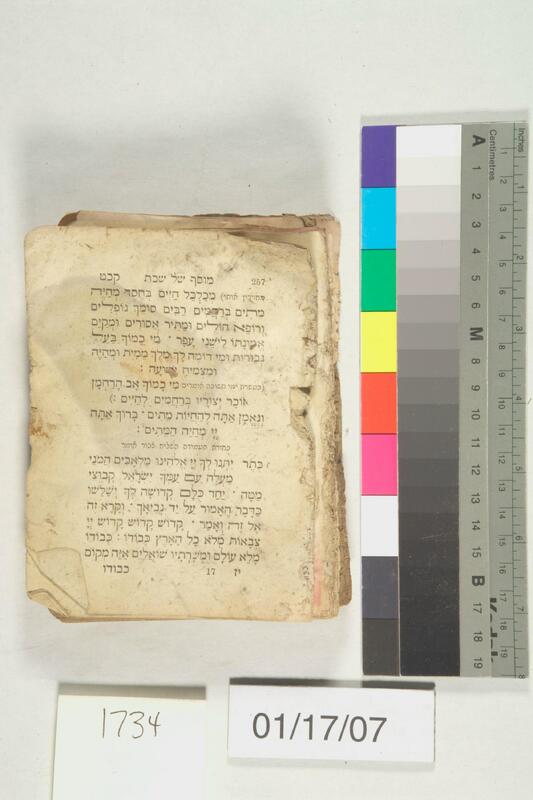 257 מוסף של שבת קכט
מְכַלְכֵּל חַיִּים בְּחֶסֶד מְחַיֵּה
מֵתִים בְּרַחֲמִים רַבִּים סוֹמֵךְ נוֹפְלִים
וְרוֹפֵא חוֹלִים וּמַתִּיר אֲסוּרִים וּמְקַיֵּם
אֱמוּנָתוֹ לִישֵׁנֵי עָפָר · מִי כָמוֹךָ בַּעַל
גְּבוּרוֹת וּמִי דוֹמֶה לָךְ מֶלֶךְ מֵמִית וּמְחַיֶּה
וּמַצְמִיחַ יְשׁוּעָה :
מִי כָמוֹךָ אַב הָרַחֲמָן
זוֹכֵר יְצוּרָיו בְּרַחֲמִים לְחַיִּים :)
וְנֶאֱמָן אַתָּה לְהַחֲיוֹת מֵתִים · בָּרוּךְ אַתָּה
יְיָ מְחַיֵּה הַמֵּתִים :
כֶּתֶר יִתְּנוּ לְךָ יְיָ אֱלֹהֵינוּ מַלְאָכִים הֲמוֹנֵי
מַעְלָה עִם עַמְּךָ יִשְׂרָאֵל קְבוּצֵי
מַטָּה · יַחַד כֻּלָּם קְדוּשָׁה לְךָ יְשַׁלֵּשׁוּ
כַּדָּבָר הָאָמוּר עַל יַד נְבִיאָךְ · וְקָרָא זֶה
אֶל זֶה וְאָמַר · קָדוֹשׁ קָדוֹשׁ קָדוֹשׁ יְיָ
צְבָאוֹת מְלֹא כָל הָאָרֶץ כְּבוֹדוֹ : כְּבוֹדוֹ
מָלֵא עוֹלָם וּמְשָׁרְתָיו שׁוֹאֲלִים אַיֵּה מְקוֹם
יז 17 כבודו
1734
01/17/07
Inches
Centimetres
1 2 3 4 5 6 7 8
A 1 2 3 4 5 6 M 8 9 10 11 12 13 14 15 B 17 18 19
Kodak